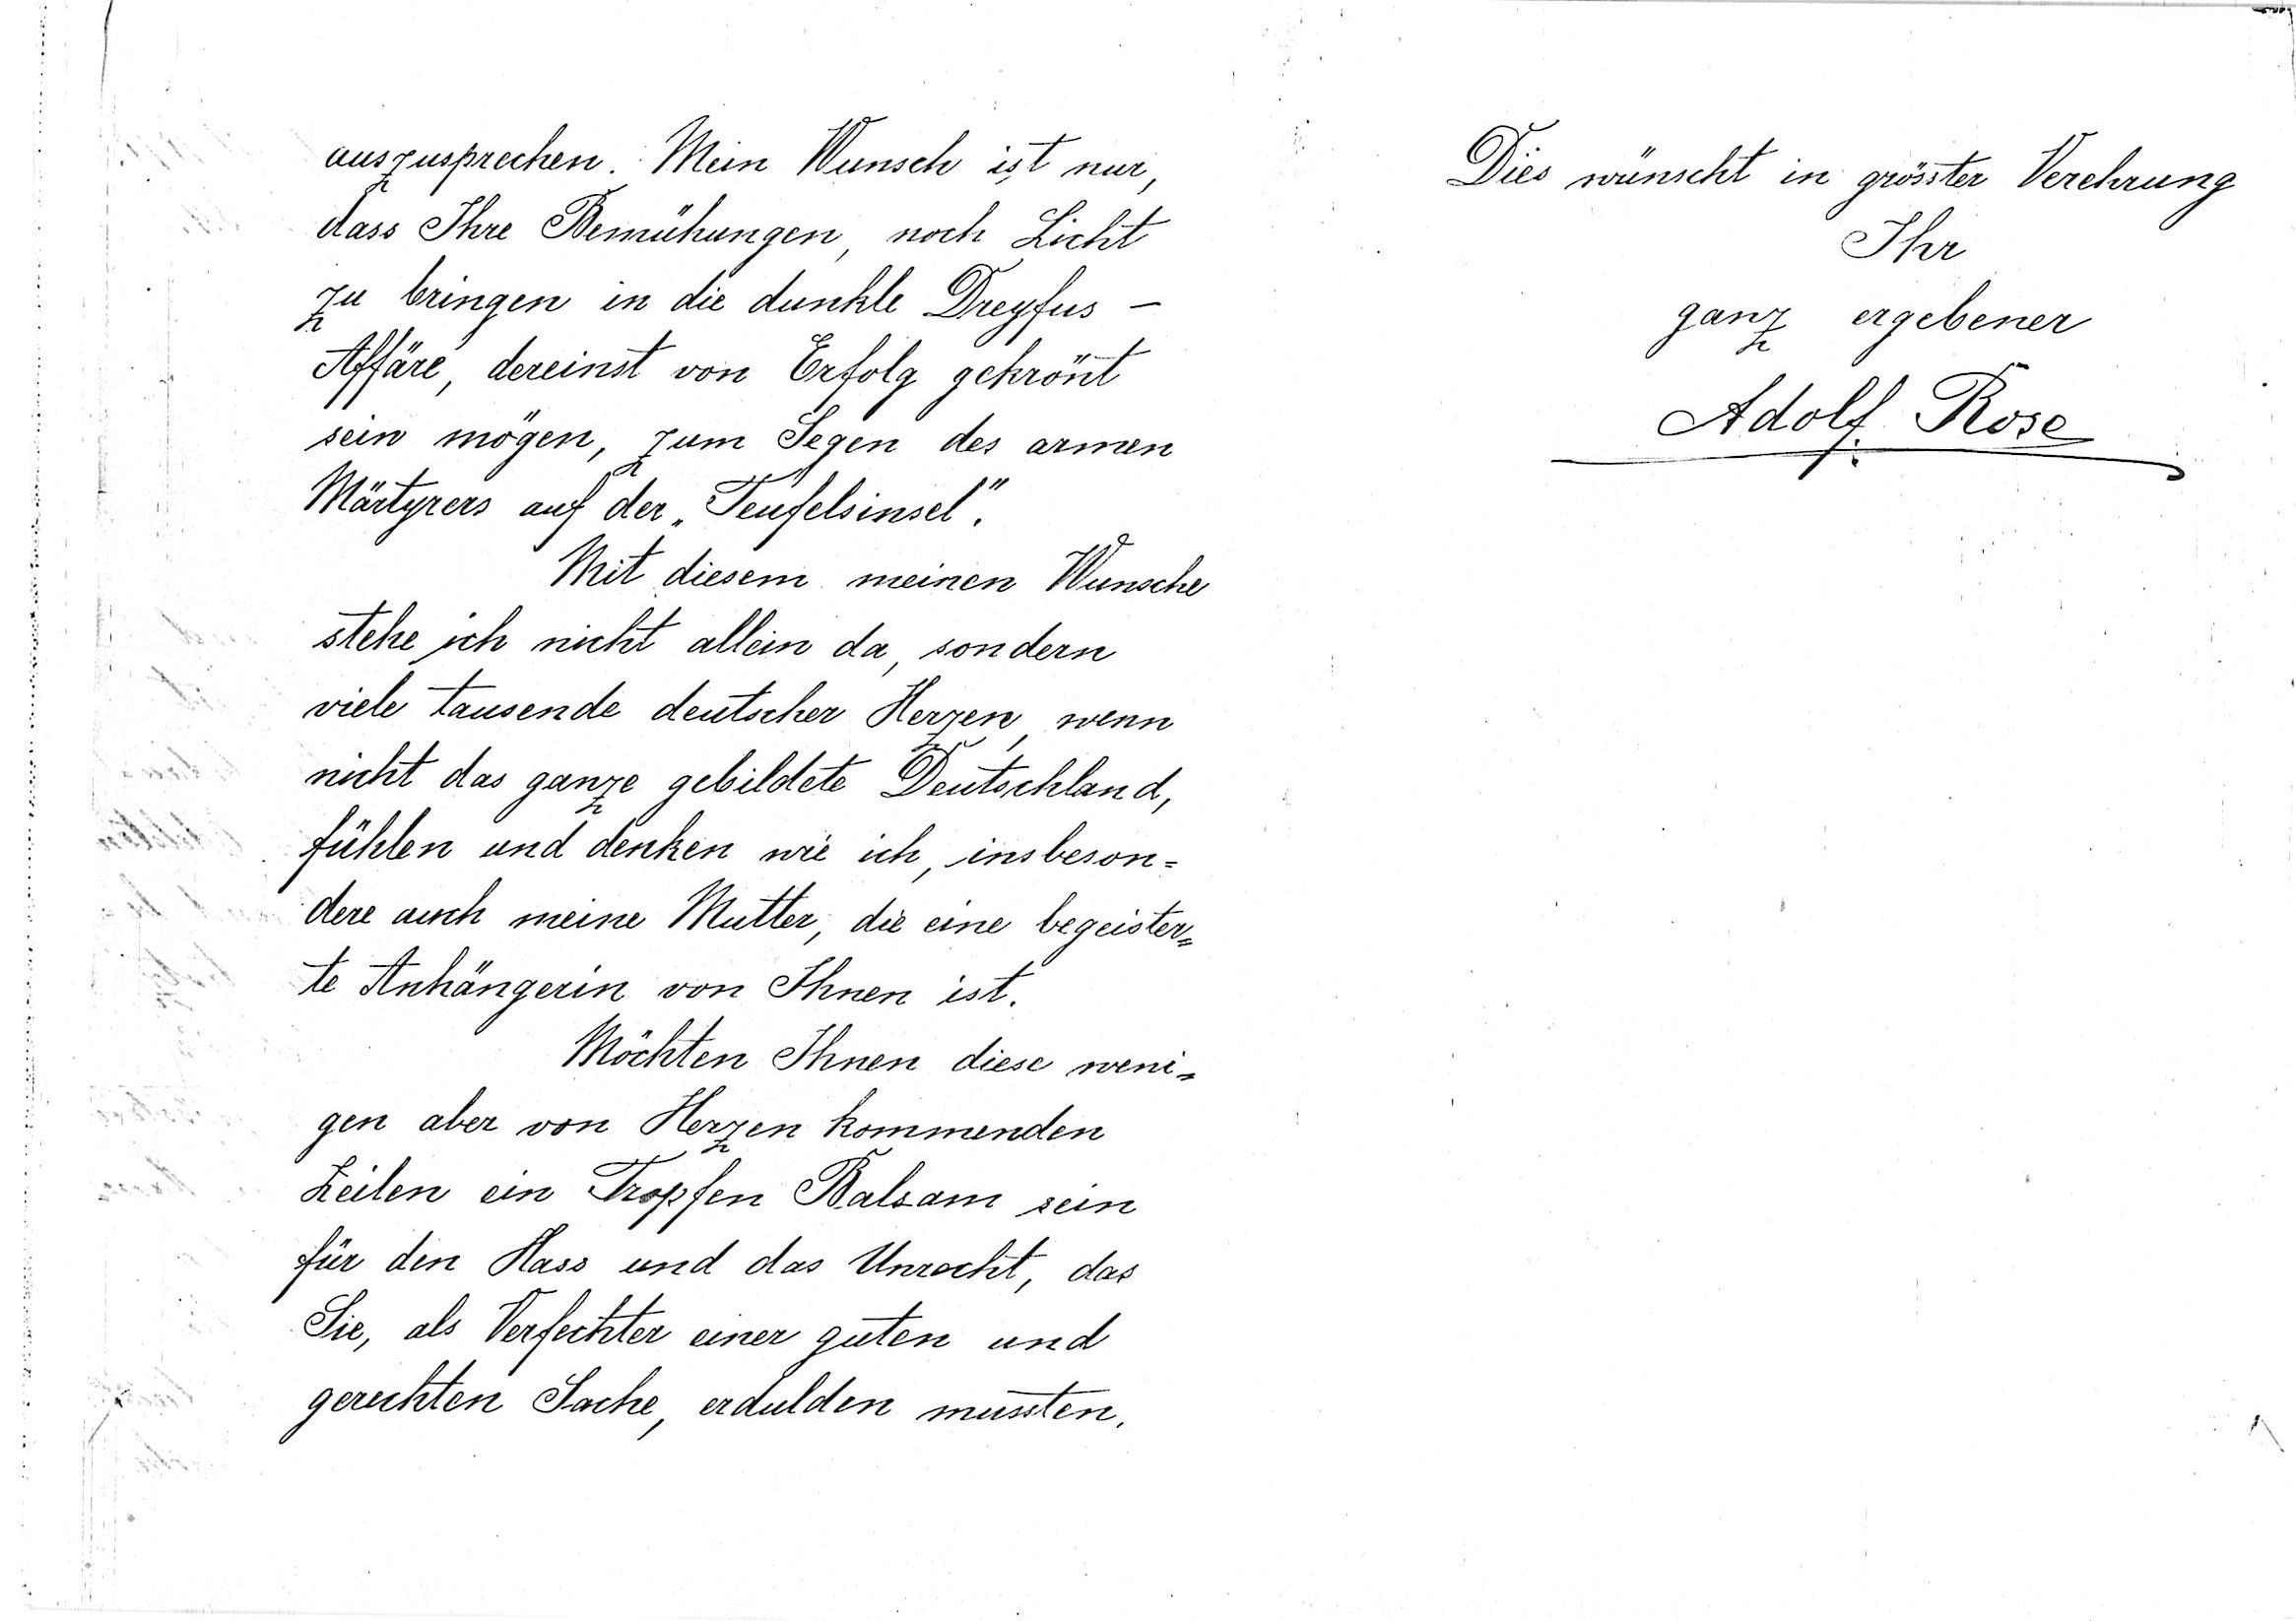 auszusprechen. Mein Wunsch ist nur,
dass Ihre Bemühungen, noch Licht
zu bringen in die dunkle Dreyfus –
Affäre, dereinst von Erfolg gekrönt
sein mögen, zum Segen des armen
Märtyrers auf der „Teufelsinsel".
Mit diesem meinen Wunsche
stehe ich nicht allein da, sondern
viele tausende deutscher Herzen, wenn
nicht das ganze gebildete Deutschland,
fühlen und denken wie ich, insbeson=
dere auch meine Mutter, die eine begeister=
te Anhängerin von Ihnen ist.
Möchten Ihnen diese weni=
gen aber von Herzen kommenden
Zeilen ein Tropfen Balsam sein
für den Hass und das Unrecht, das
Sie, als Verfechter einer guten und
gerechten Sache, erdulden mussten.
Dies wünscht in grösster Verehrung
Ihr
ganz ergebener
Adolf Rose